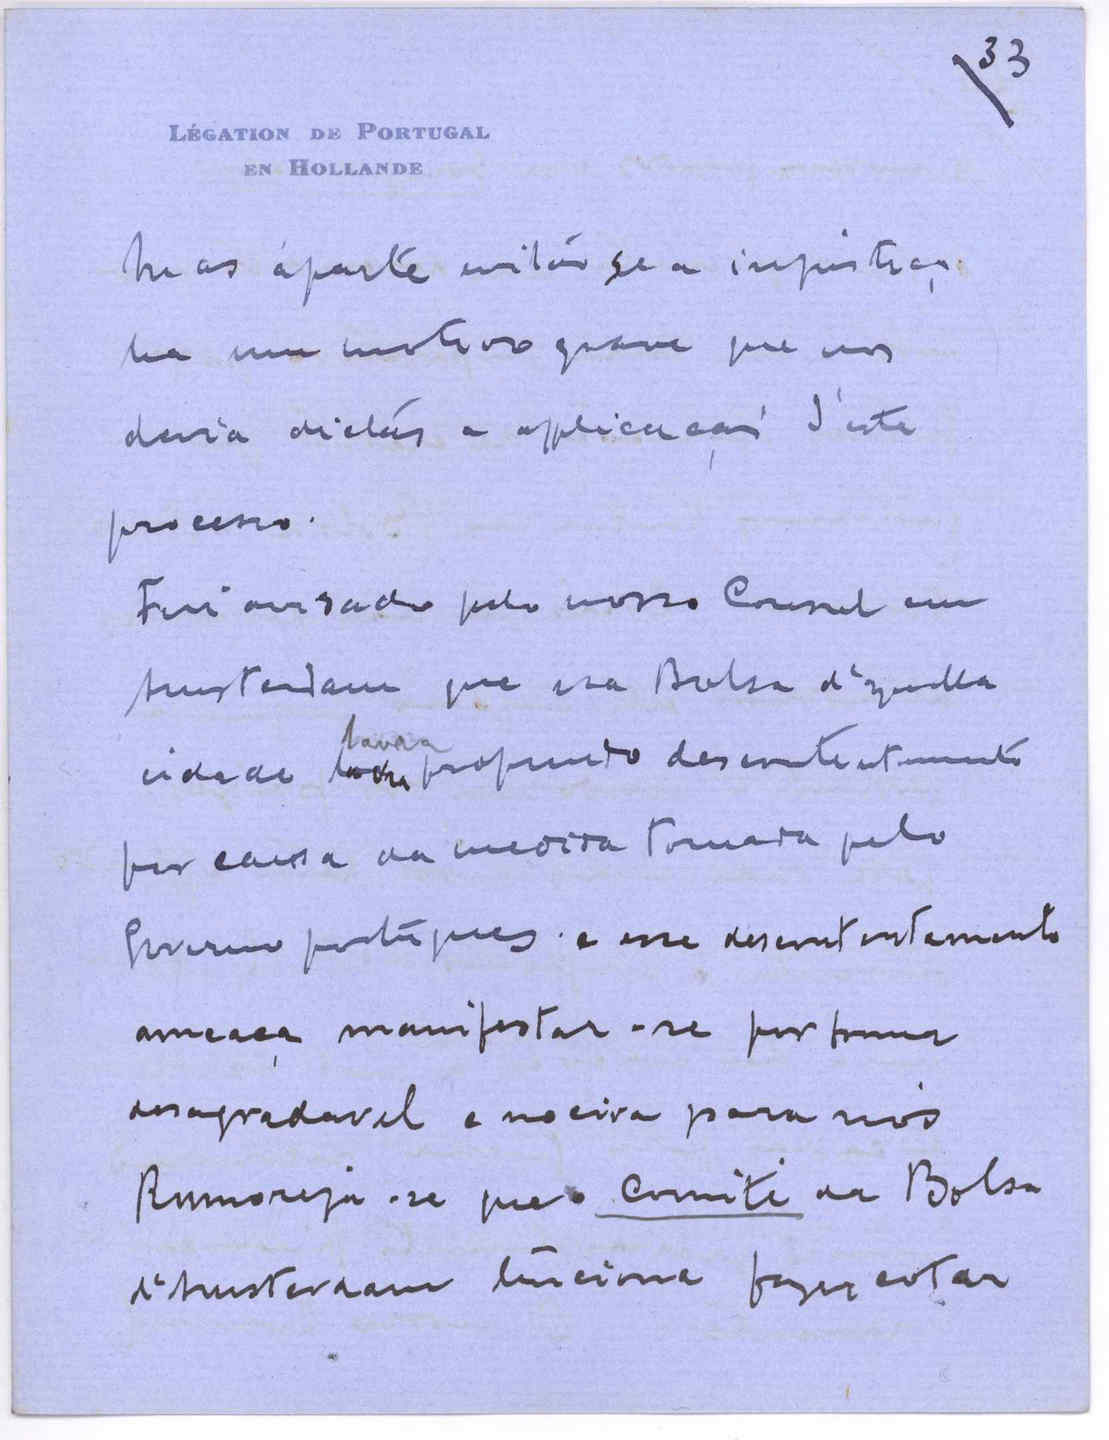 33
LÉGATION DE PORTUGAL
EN HOLLANDE
Mas áparte evitár se a injustiça
ha um motivo grave que nos
devia dictár a applicação d'este
processo.
Fui avisado pelo nosso Consul em
Amsterdam que na Bolsa d'aquella
cidade lavra profundo descontentamento
por causa da medida tomada pelo
Governo portuguez. e esse descontentamento
ameaça manifestar-se por forma
desagradavel e nociva para nós
Rumoreja-se que o Comité da Bolsa
d'Amsterdam tenciona fazer cotar